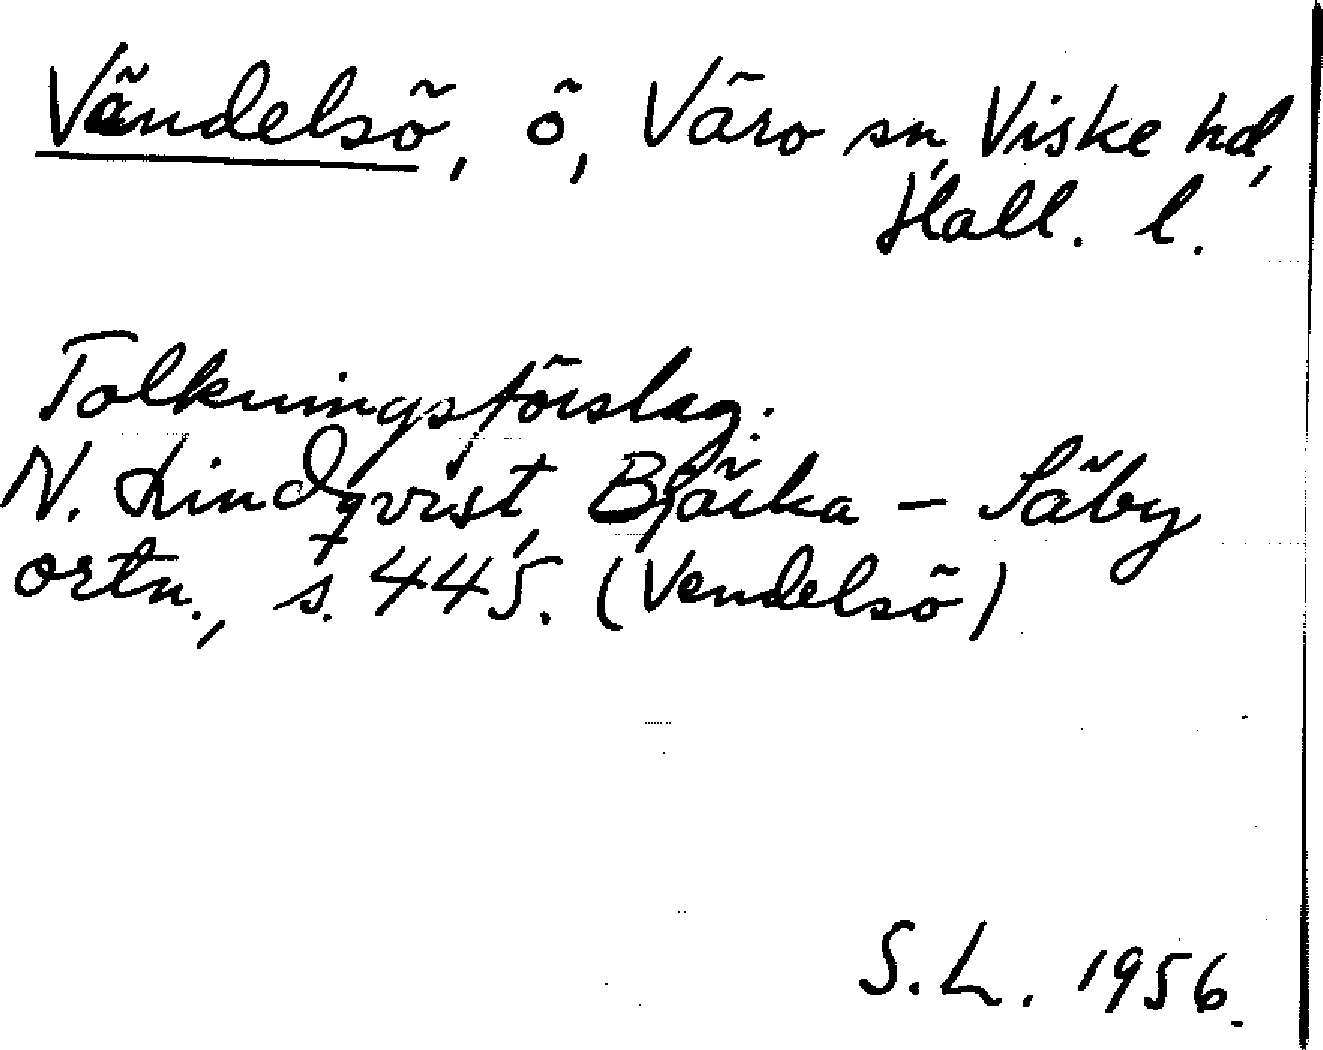 Vändelsö, ö, Värö sn, Viske hd,
Hall. l.
Tolkningsförslag.
N. Lindqvist, Bjärka - Säby
ortn., s. 445. (Vendelsö)
S.L. 1956.